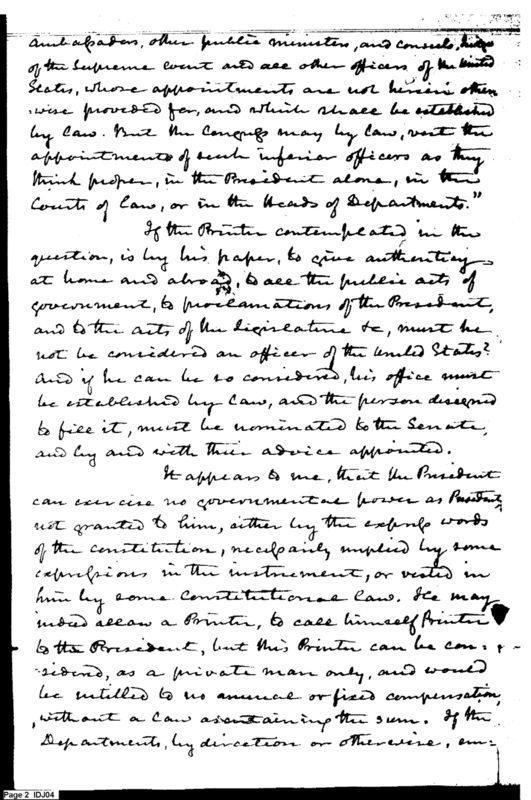 ambassadors, other public ministers, and consuls, Judges
of the Supreme court and all other officers of the United
States, whose appointments are not herein other-
wise provided for, and which shall be established
by law. But the Congress may by law, vest the
appointments of such inferior officers as they
think proper, in the President alone, in the
Courts of law, or in the Heads of Departments."
If the Printer contemplated in the
question, is by his paper, to give authenticity
at home and abroad, to all the public acts of
government, to proclamations of the President,
and to the acts of the legislature &c, must he
not be considered an officer of the United States?
And if he can be so considered, his office must
be established by law, and the person designed
to fill it, must be nominated to the Senate,
and by and with their advice appointed.
It appears to me, that the President
can exercise no governmental power as President,
not granted to him, either by the express words
of the constitution, necessarily implied by some
expressions in the instrument, or vested in
him by some Constitutional law. He may
indeed allow a Printer, to call himself Printer
to the President, but this Printer can be con-
-sidered, as a private man only, and would
be intitled to no annual or fixed compensation,
without a law ascertaining the sum. If the
Departments, by direction or otherwise, em=
Page 2 IDJ04